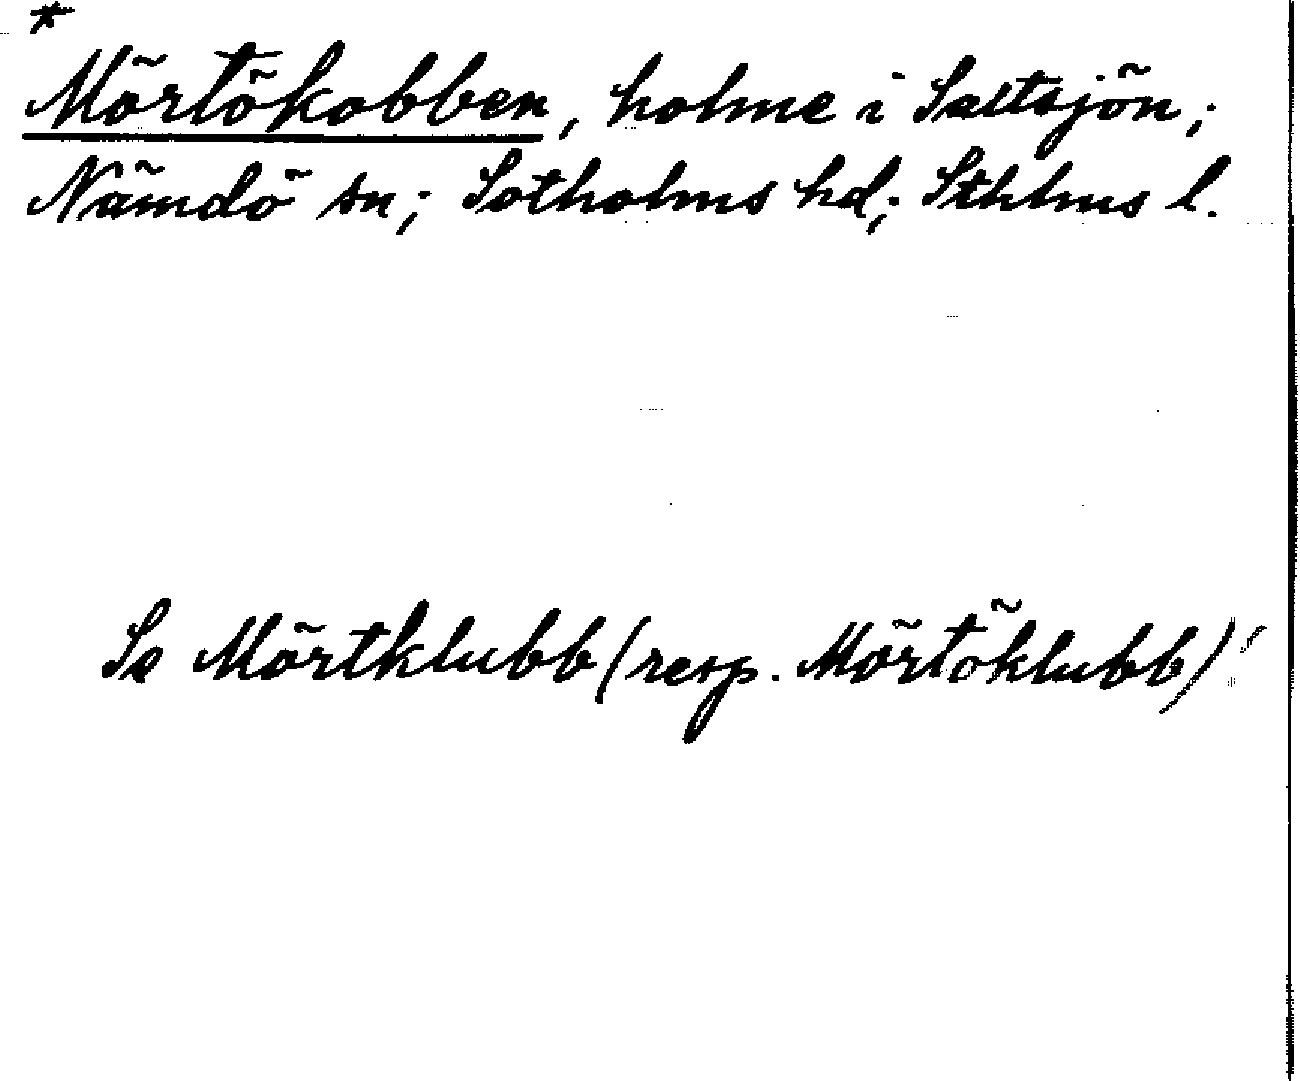 *
Mörtökobben, holme i Saltsjön;
Nämdö sn; Sotholms hd; Sthlms l.
Se Mörtklubb (resp. Mörtöklubb)!